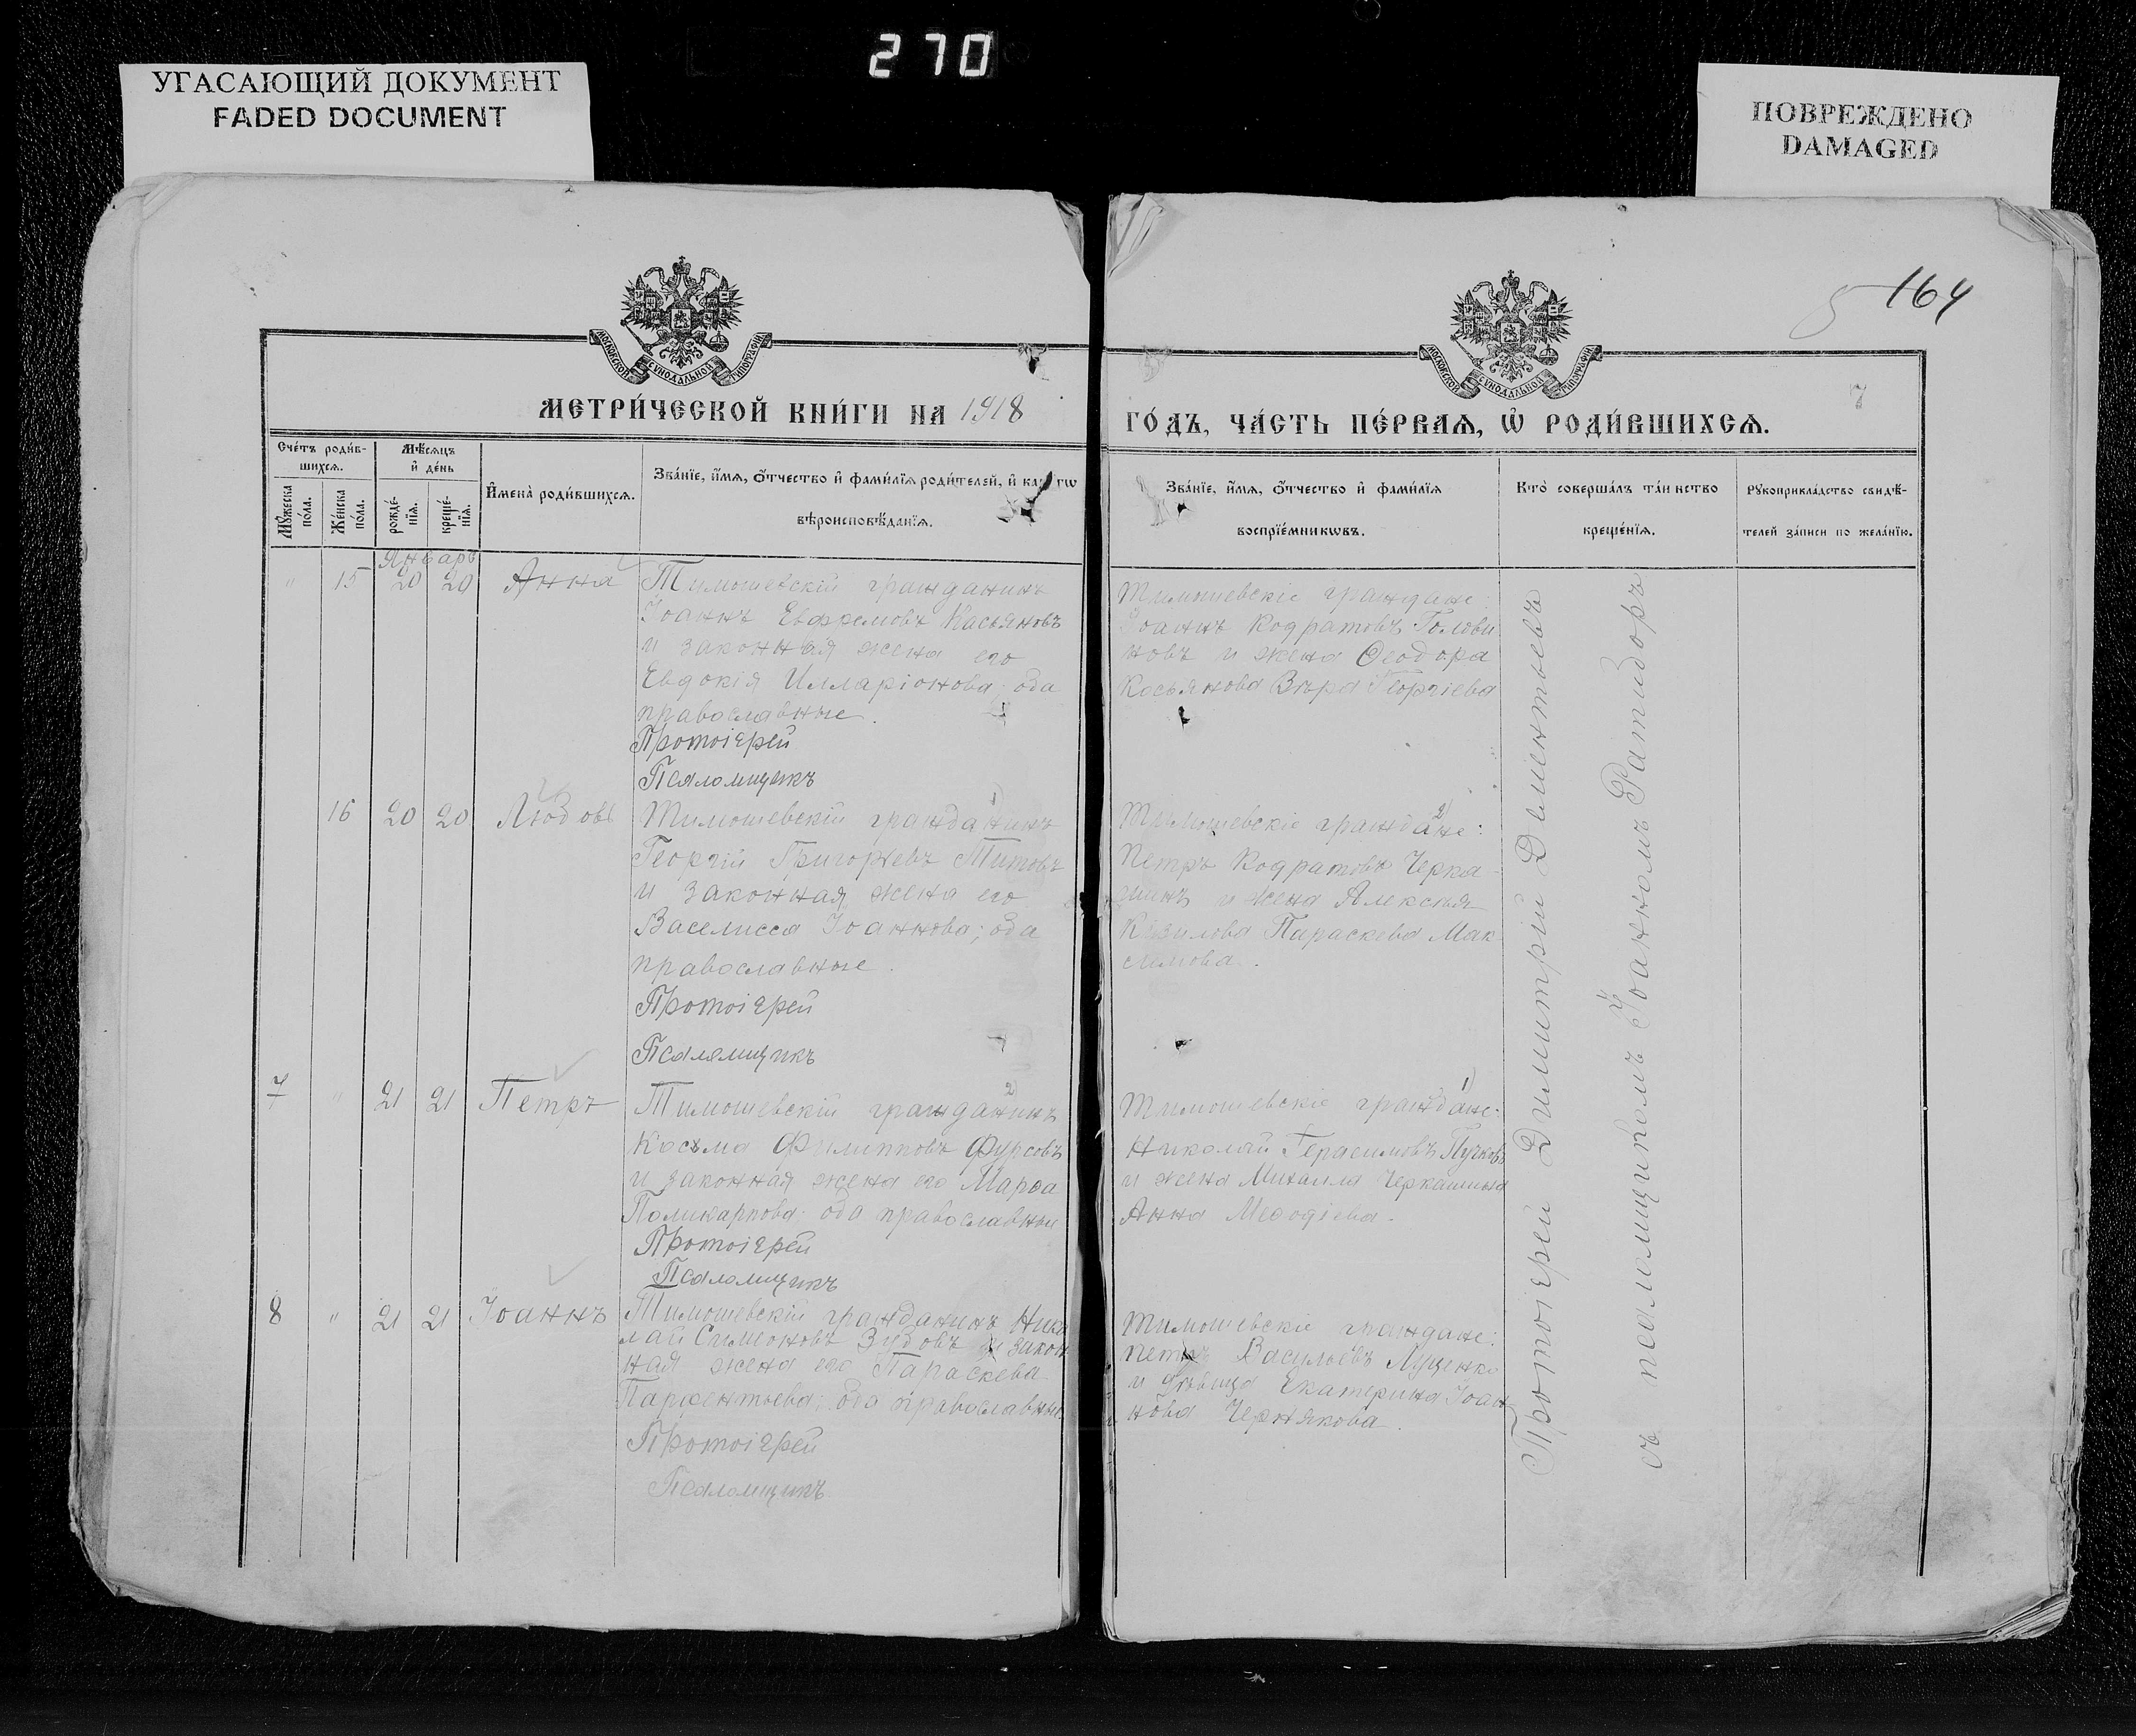 270
УГАСАЮЩИЙ ДОКУМЕНТ
FADED DOCUMENT
ПОВРЕЖДЕНО
DAMAGED
164
МОСКОВСКОЙ СѴНОДАЛЬНОЙ ТИПОГРАФІИ
МОСКОВСКОЙ СѴНОДАЛЬНОЙ ТИПОГРАФІИ
МЕТРИ́ЧЕСКОЙ КНИ́ГИ НА 1918
ГО́ДЪ, ЧА́СТЬ ПЕ́РВАѦ, Ѡ҆ РОДИ́ВШИХСѦ.
7
Сче́тъ роди́в-
шихсѧ.
Мꙋ́жеска
по́ла.
Же́нска
по́ла.
Мѣ́сѧцъ
и҆ де́нь
рожде́-
нїѧ.
креще́-
нїѧ.
И҆мена̀ роди́вшихсѧ.
Зва́нїе, и҆́мѧ, ѻ҆́тчество и҆ фами́лїѧ роди́телей, и҆ ка
гѡ
вѣроисповѣ́данїѧ.
Зва́нїе, и҆́мѧ, ѻ҆́тчество и҆ фами́лїѧ
воспрїе́мникѡвъ.
Кто̀ соверша́лъ та́инство
креще́нїѧ.
Рꙋкоприкла́дство свидѣ́-
телей за́писи по жела́нїю.
Январь
" 15 20 20 Анна
Тимошевскій гражданинъ
Іоаннъ Евфремовъ Касьяновъ
и законная жена его
Евдокія Илларіонова; оба
православные.
Протоіерей
Псаломщикъ
Тимошевскіе граждане:
Іоаннъ Кодратовъ Голови
новъ и жена Ѳеодора
Косьянова Вѣра Георгіева
16 20 20 Любовь
Тимошевскій гражданинъ 1)
Георгій Григорьевъ Титовъ
и законная жена его
Васелисса Іоаннова; оба
православные.
Протоіерей
Псаломщикъ
Тимошевскіе граждане: 2)
Петръ Кодратовъ Черка-
шинъ и жена Алексѣя
Параскева Мак
симова.
7 " 21 21 Петръ
Тимошевскій гражданинъ 2)
Косьма Филипповъ Фурсовъ
и законная жена его Марѳа
Поликарпова; оба православные
Протоіерей
Псаломщикъ
Тимошевскіе граждане: 1)
Николай Герасимовъ Пучковъ
и жена Михаила Черкашина
Анна Меѳодіева.
8 " 21 21 Іоаннъ
Тимошевскій гражданинъ Нико
лай Симеоновъ и закон
ная жена его Параскева
Парѳентьева; оба православные
Протоіерей
Псаломщикъ
Тимошевскіе граждане:
Петръ Васильевъ Луценко
и дѣвица Екатерина Іоан
нова Чернякова.
Протоіерей Димитрій Дементьевъ
съ псаломщикомъ Іоанномъ Ратидоръ